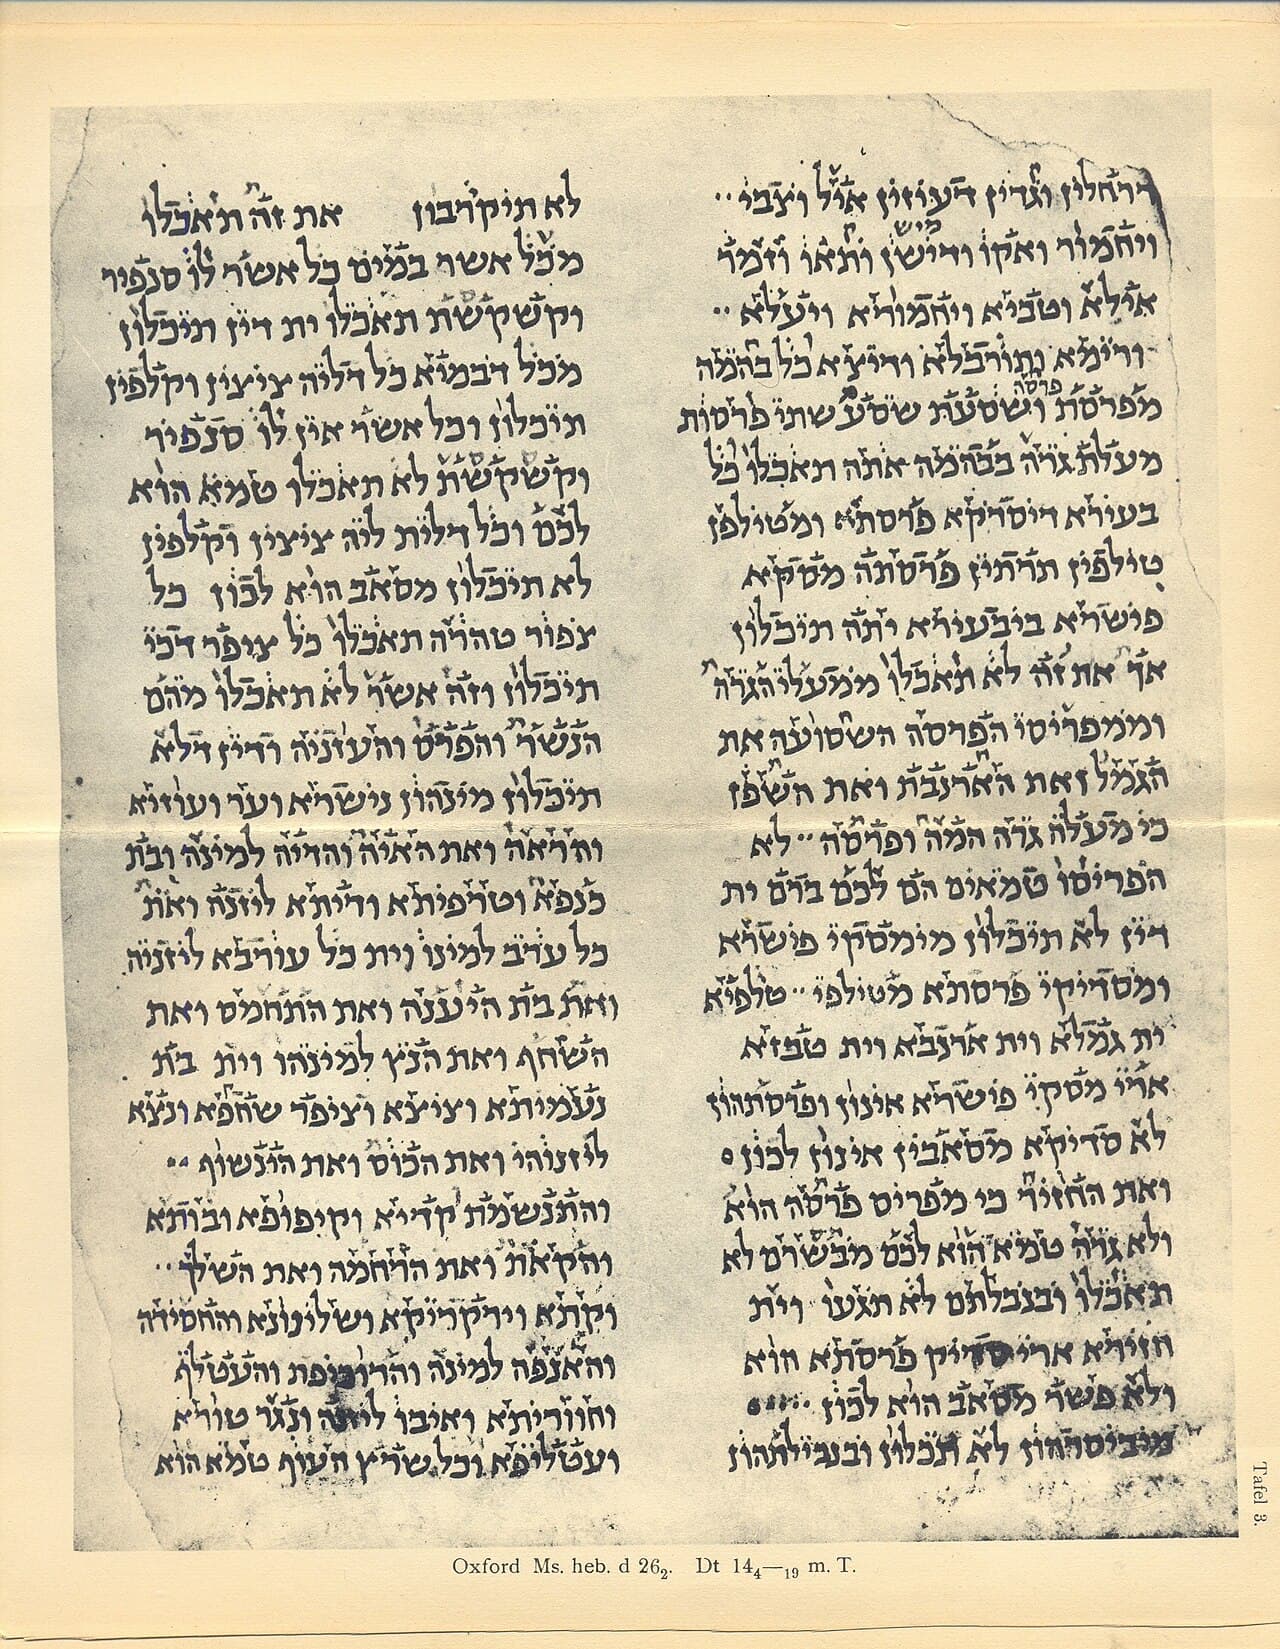 דרחלין וגדיין דעיזין איל וצבי
ויחמור ואקו ודישן ותאו וזמר
אילא וטביא ויחמורא ויעלא
ורימא ותורבלא ודיצא כל בהמה
מפרסת פרסה ושסעת שסע שתי פרסות
מעלת גרה בבהמה אתה תאכלו כל
בעירא דיסדיקא פרסתא ומטולפן
טולפין תרתין פרסתה מסקא
פישרא ביבעירא יתה תיכלון
אך את זה לא תאכלו ממעלי הגרה
וממפריסי הפרסה השסועה את
הגמל ואת הארנבת ואת השפן
כי מעלה גרה המה ופרסה לא
הפריסו טמאים הם לכם ברם ית
דין לא תיכלון מימסקי פישרא
ומסדיקי פרסתא מטילפי טלפיא
ית גמלא וית ארנבא וית טבזא
ארי מסקי פישרא אינון ופרסתהון
לא סדיקא מסאבין אינון לכון
ואת החזיר כי מפריס פרסה הוא
ולא גרה טמא הוא לכם מבשרם לא
תאכלו ובנבלתם לא תגעו וית
חזירא ארי סדיק פרסתא הוא
ולא פשר מסאב הוא לכון
מיביסרהון לא תיכלון ובנבילתהון
לא תיקרבון את זה תאכלו
מכל אשר במים כל אשר לו סנפיר
וקשקשת תאכלו ית דין תיכלון
מכל דבמיא כל דליה ציצין וקלפין
תיכלון וכל אשר אין לו סנפיר
וקשקשת לא תאכלו טמא הוא
לכם וכל דלית ליה ציצין וקלפין
לא תיכלון מסאב הוא לכון כל
צפור טהרה תאכלו כל ציפר דכי
תיכלון וזה אשר לא תאכלו מהם
הנשר והפרס והעזניה ודין דלא
תיכלון מינהון נישרא וער ועוזיא
והראה ואת האיה והדיה למינה ובת
כנפא וטרפיתא ודיתא ליזנה ואת
כל ערב למינו וית כל עורבא ליזניה
ואת בת היענה ואת התחמס ואת
השחף ואת הנץ למינהו וית בת
נעמיתא וציצא וציפר שחפא ונצא
ליזנוהי ואת הכוס ואת הינשוף
והתנשמת קדיא וקיפופא ובותא
והקאת ואת הרחמה ואת השלך
וקתא וירקריקא ושלינונא והחסידה
והאנפה למינה והדוכיפת והעטלף
וחווריתא ואיבו ליזנה ונגר טורא
ועטליפא וכל שרץ העוף טמא הוא
Oxford Ms. heb. d 26₂. Dt 14₄—₁₉ m. T.
Tafel 3.